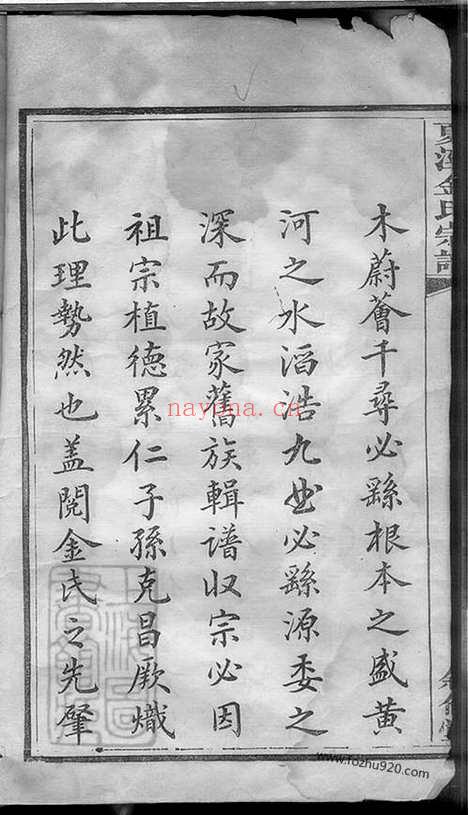 金氏宗譜
木蔚薈千尋必繇根本之盛黃
河之水滔浩九曲必繇源委之
深而故家舊族輯譜収宗必因
祖宗植德累仁子孫克昌厥熾
此理勢然也盖閱金氏之先肇
nayona.ca
www.fozhu920.com